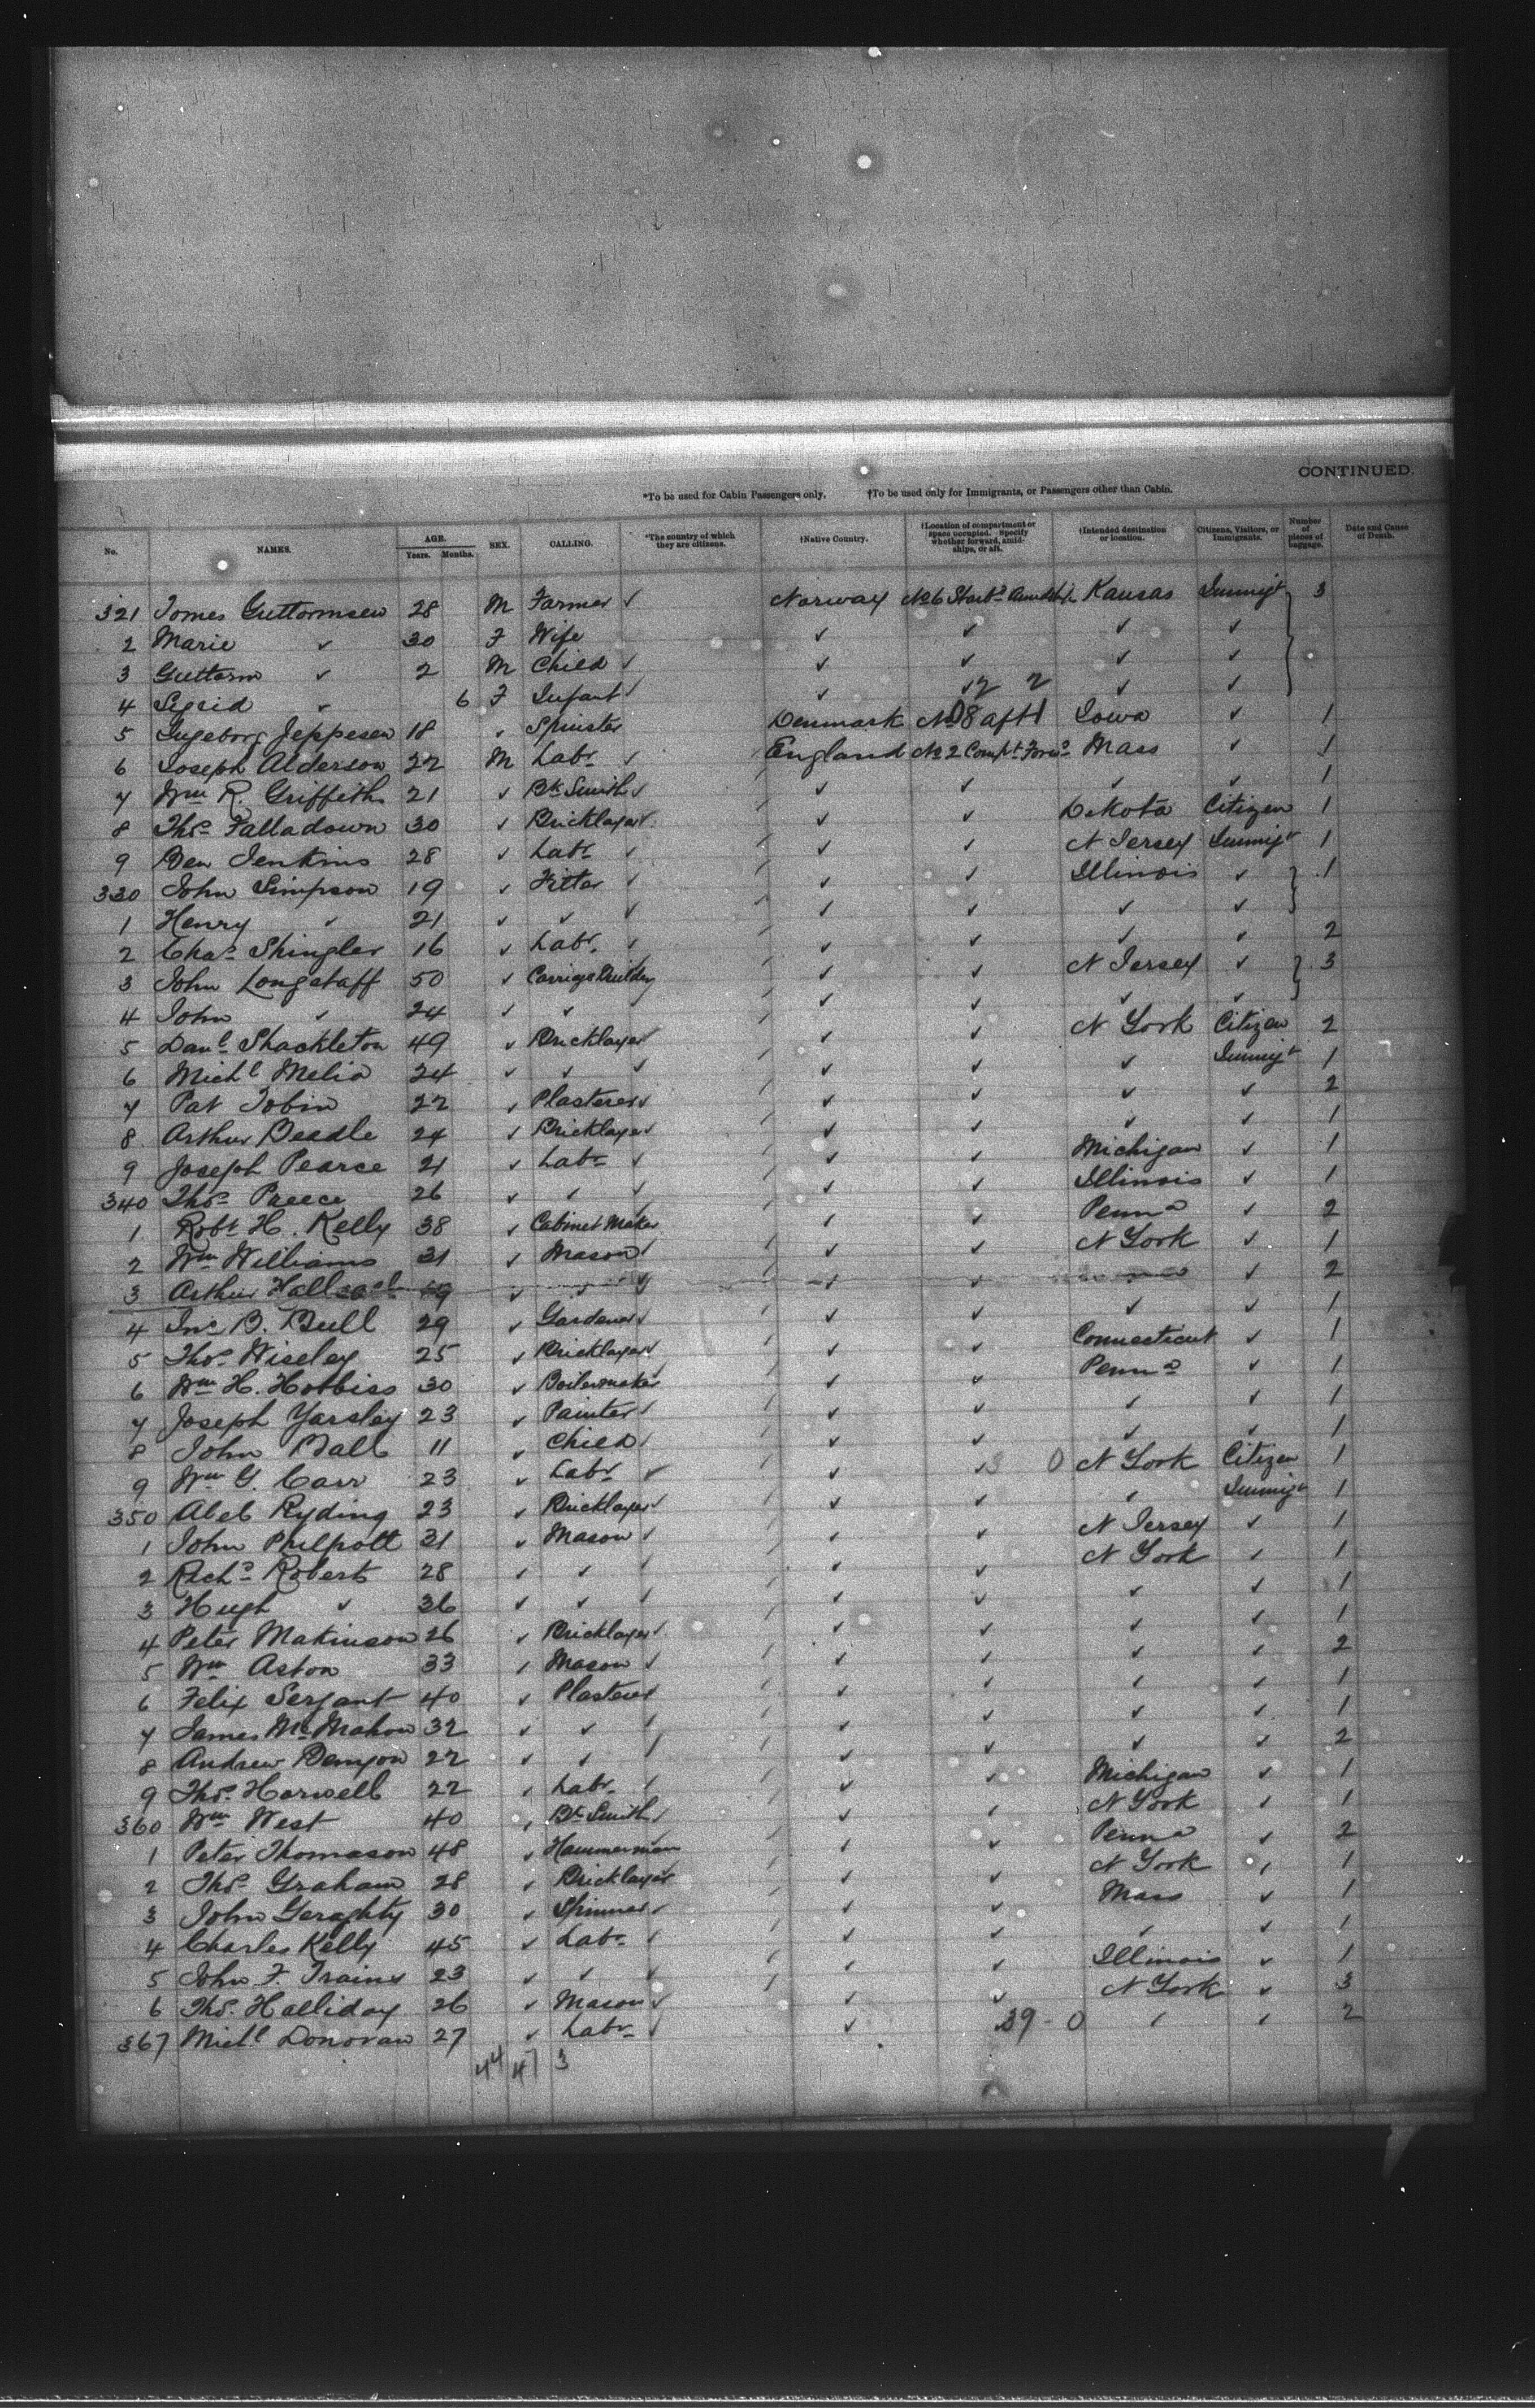 CONTINUED.
*To be used for Cabin Passengers only. †To be used only for Immigrants, or Passengers other than Cabin.
No. NAMES. AGE. Years. Months. SEX. CALLING. *The country of which they are citizens. †Native Country. †Location of compartment or space occupied. Specify whether forward, amidships, or aft. †Intended destination or location. Citizens, Visitors, or Immigrants. Number of pieces of baggage. Date and Cause of Death.
321 Tomes Guttormsen 28 M Farmer ✓ Norway No 6 Starbd Kansas Immigt 3
2 Marie ✓ 30 F Wife ✓ ✓ ✓ ✓
3 Guttorm ✓ 2 M Child ✓ ✓ ✓ ✓ ✓
4 Sigrid ✓ 6 F Infant ✓ ✓ 2 2 ✓ ✓
5 Ingeborg Jeppesen 18 ✓ Spinster Denmark No 8 aft 1 Iowa ✓ 1
6 Joseph Alderson 22 M Labr ✓ England No 2 Compt Forwd Mass ✓ 1
7 Wm R. Griffiths 21 ✓ Bk Smith ✓ ✓ ✓ ✓ ✓ 1
8 Thos Falladown 30 ✓ Bricklayer ✓ ✓ ✓ Dakota Citizen 1
9 Ben Jenkins 28 ✓ Labr ✓ ✓ ✓ N Jersey Immigt 1
330 John Simpson 19 ✓ Fitter ✓ ✓ ✓ Illinois ✓ 1
1 Henry ✓ 21 ✓ ✓ ✓ ✓ ✓ ✓ ✓
2 Chas Shingler 16 ✓ Labr ✓ ✓ ✓ ✓ ✓ 2
3 John Longstaff 50 ✓ Carriage Builder ✓ ✓ N Jersey ✓ 3
4 John ✓ 24 ✓ ✓ ✓ ✓ ✓ ✓
5 Danl Shackleton 49 ✓ Bricklayer ✓ ✓ ✓ N York Citizen 2
6 Michl Melia 24 ✓ ✓ ✓ ✓ ✓ ✓ Immigt 1
7 Pat Tobin 22 ✓ Plasterer ✓ ✓ ✓ ✓ ✓ 2
8 Arthur Beadle 24 ✓ Bricklayer ✓ ✓ ✓ ✓ ✓ 1
9 Joseph Pearce 21 ✓ Labr ✓ ✓ ✓ Michigan ✓ 1
340 Thos Preece 26 ✓ ✓ ✓ ✓ ✓ Illinois ✓ 1
1 Robt H. Kelly 38 ✓ Cabinet Maker ✓ ✓ Penna ✓ 2
2 Wm Williams 31 ✓ Mason ✓ ✓ ✓ N York ✓ 1
3 Arthur ✓ ✓ ✓ ✓ ✓ ✓ 2
4 Jno B. Bull 29 ✓ Gardener ✓ ✓ ✓ ✓ ✓ 1
5 Thos Wiseley 25 ✓ Bricklayer ✓ ✓ ✓ Connecticut ✓ 1
6 Wm H. Hotbiss 30 ✓ Boilermaker ✓ ✓ Penna ✓ 1
7 Joseph Yarsley 23 ✓ Painter ✓ ✓ ✓ ✓ ✓ 1
8 John Ball 11 ✓ Child ✓ ✓ ✓ ✓ ✓ 1
9 Wm G. Carr 23 ✓ Labr ✓ ✓ 3 0 N York Citizen 1
350 Abel Ryding 23 ✓ Bricklayer ✓ ✓ ✓ ✓ Immigt 1
1 John Philpott 31 ✓ Mason ✓ ✓ ✓ N Jersey ✓ 1
2 Richd Roberts 28 ✓ ✓ ✓ ✓ ✓ N York ✓ 1
3 Hugh ✓ 36 ✓ ✓ ✓ ✓ ✓ ✓ ✓ 1
4 Peter Makinson 26 ✓ Bricklayer ✓ ✓ ✓ ✓ ✓ 1
5 Wm Aston 33 ✓ Mason ✓ ✓ ✓ ✓ ✓ 2
6 Felix Serjant 40 ✓ Plasterer ✓ ✓ ✓ ✓ 1
7 James McMahon 32 ✓ ✓ ✓ ✓ ✓ ✓ ✓ 1
8 Andrew Benyon 22 ✓ ✓ ✓ ✓ ✓ ✓ ✓ 2
9 Thos Harwell 22 ✓ Labr ✓ ✓ ✓ Michigan ✓ 1
360 Wm West 40 ✓ Bk Smith ✓ ✓ ✓ N York ✓ 1
1 Peter Thomason 48 ✓ Hammerman ✓ ✓ Penna ✓ 2
2 Thos Graham 28 ✓ Bricklayer ✓ ✓ N York ✓ 1
3 John Geraghty 30 ✓ Spinner ✓ ✓ ✓ Mass ✓ 1
4 Charles Kelly 45 ✓ Labr ✓ ✓ ✓ ✓ ✓ 1
5 John F. Trainy 23 ✓ ✓ ✓ ✓ ✓ Illinois ✓ 1
6 Thos Halliday 26 ✓ Mason ✓ ✓ ✓ N York ✓ 3
367 Michl Donovan 27 ✓ Labr ✓ ✓ 39 - 0 ✓ ✓ 2
44 47 3